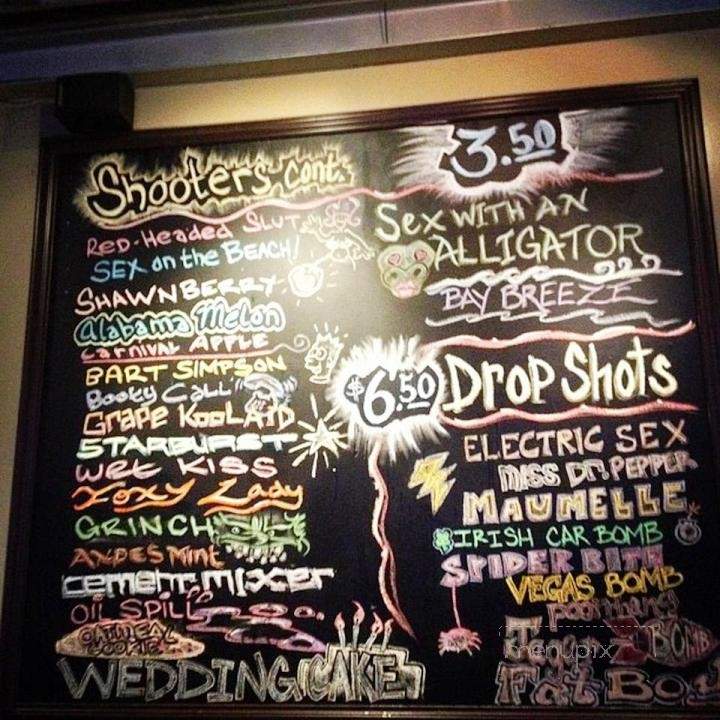 Shooters cont.
Red-Headed Slut
SEX on the BEACH!
SHAWNBERRY
Alabama Melon
Carnival APPLE
BART SIMPSON
Booty Call
Grape KooLAID
STARBURST
WET KISS
Foxy Lady
GRINCH
ANDES MINT
cement mixer
OIL SPILL
OATMEAL COOKIE
WEDDING CAKE
3.50
Sex WITH AN
ALLIGATOR
BAY BREEZE
$6.50 Drop Shots
ELECTRIC SEX
MISS DR. PEPPER
MAUMELLE
IRISH CAR BOMB
SPIDER BITE
VEGAS BOMB
Jager BOMB
Fat Boy
menupix